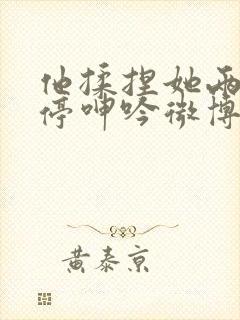 他揉捏她两
停呻吟微博
黄泰京